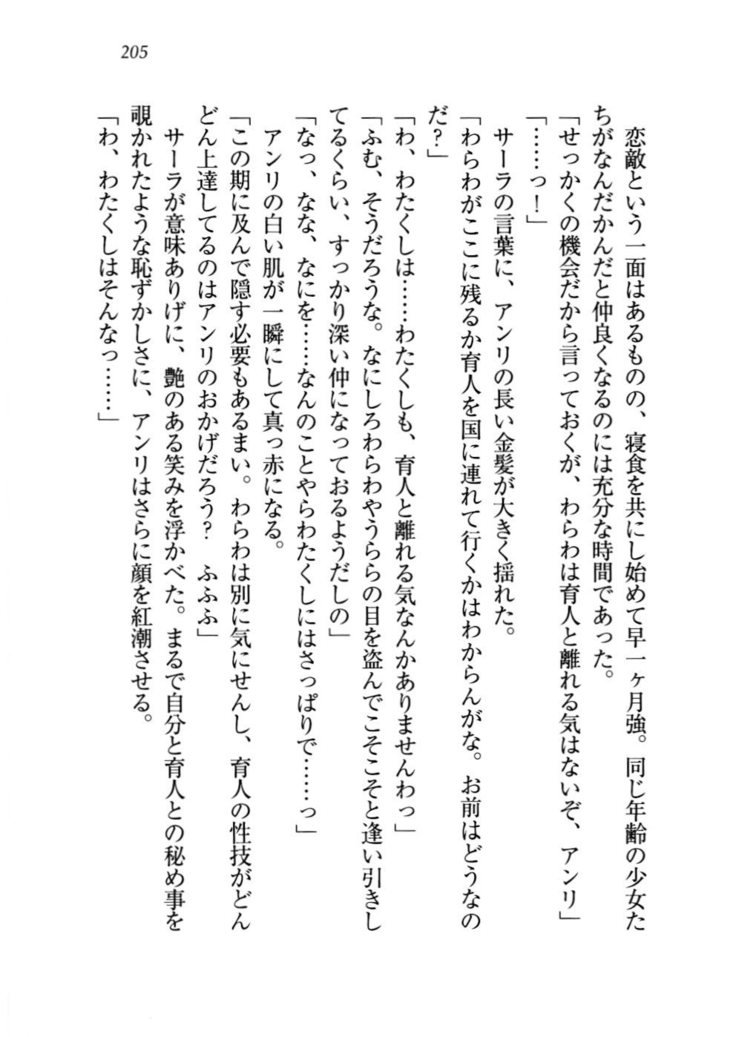 205
恋敵という一面はあるものの、寝食を共にし始めて早一ヶ月強。同じ年齢の少女た
ちがなんだかんだと仲良くなるのには充分な時間であった。
「せっかくの機会だから言っておくが、わらわは育人と離れる気はないぞ、アンリ」
「……っ！」
サーラの言葉に、アンリの長い金髪が大きく揺れた。
「わらわがここに残るか育人を国に連れて行くかはわからんがな。お前はどうなの
だ？」
「わ、わたくしは……わたくしも、育人と離れる気なんかありませんわっ」
「ふむ、そうだろうな。なにしろわらわやうららの目を盗んでこそこそと逢い引きし
てるくらい、すっかり深い仲になっておるようだしの」
「なっ、なな、なにを……なんのことやらわたくしにはさっぱりで……っ」
アンリの白い肌が一瞬にして真っ赤になる。
「この期に及んで隠す必要もあるまい。わらわは別に気にせんし、育人の性技がどん
どん上達してるのはアンリのおかげだろう？　ふふふ」
サーラが意味ありげに、艶のある笑みを浮かべた。まるで自分と育人との秘め事を
覗かれたような恥ずかしさに、アンリはさらに顔を紅潮させる。
「わ、わたくしはそんなっ……」